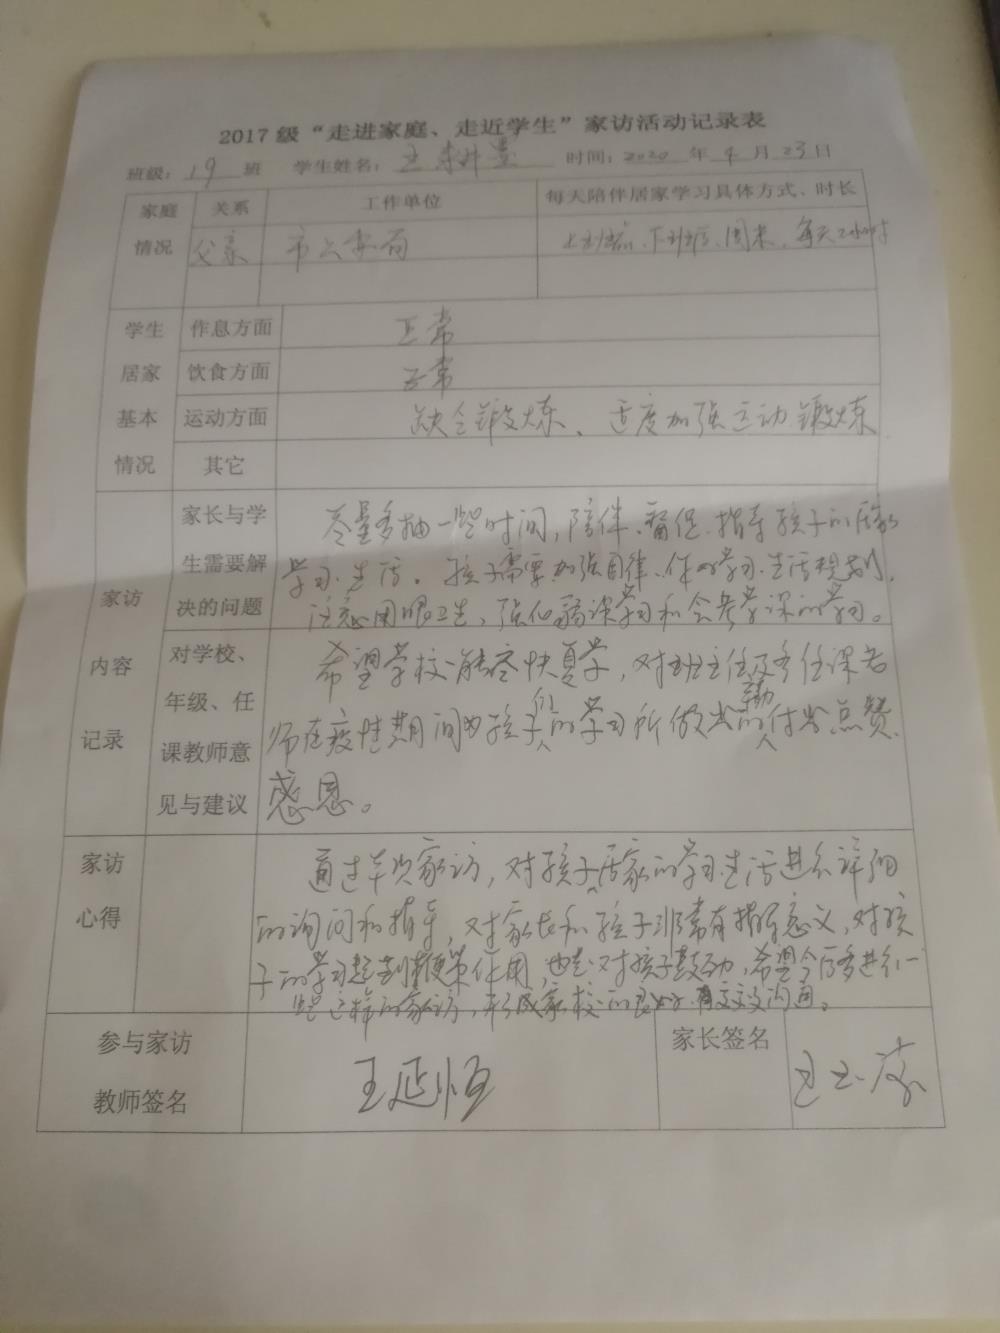 2017级“走进家庭、走近学生”家访活动记录表
班级：19班 学生姓名：王 时间：2020年4月23日
家庭 关系 工作单位 每天陪伴居家学习具体方式、时长
情况 父亲 市公安局 上班前、下班后、周末，每天2小时
学生 作息方面 正常
居家 饮食方面 正常
基本 运动方面 缺乏锻炼、适度加强运动锻炼
情况 其它
家访
内容
记录
家长与学
生需要解
决的问题
尽量多抽一些时间，陪伴、督促、指导孩子的居家
学习、生活。孩子需要加强自律、作好学习、生活规划，
注意用眼卫生，强化弱课学习和会考学课的学习。
对学校、
年级、任
课教师意
见与建议
希望学校能尽快复学，对班主任及各任课老
师在疫情期间为孩子们的学习所做出的付出点赞、
感恩。
家访
心得
通过本次家访，对孩子居家的学习、生活进行详细
的询问和指导，对家长和孩子非常有指导意义，对孩
子的学习起到鞭策作用，也是对孩子鼓励，希望今后多进行一
些这样的家访，形成家校的良好、有效沟通。
参与家访
教师签名
王延恒
家长签名
王玉